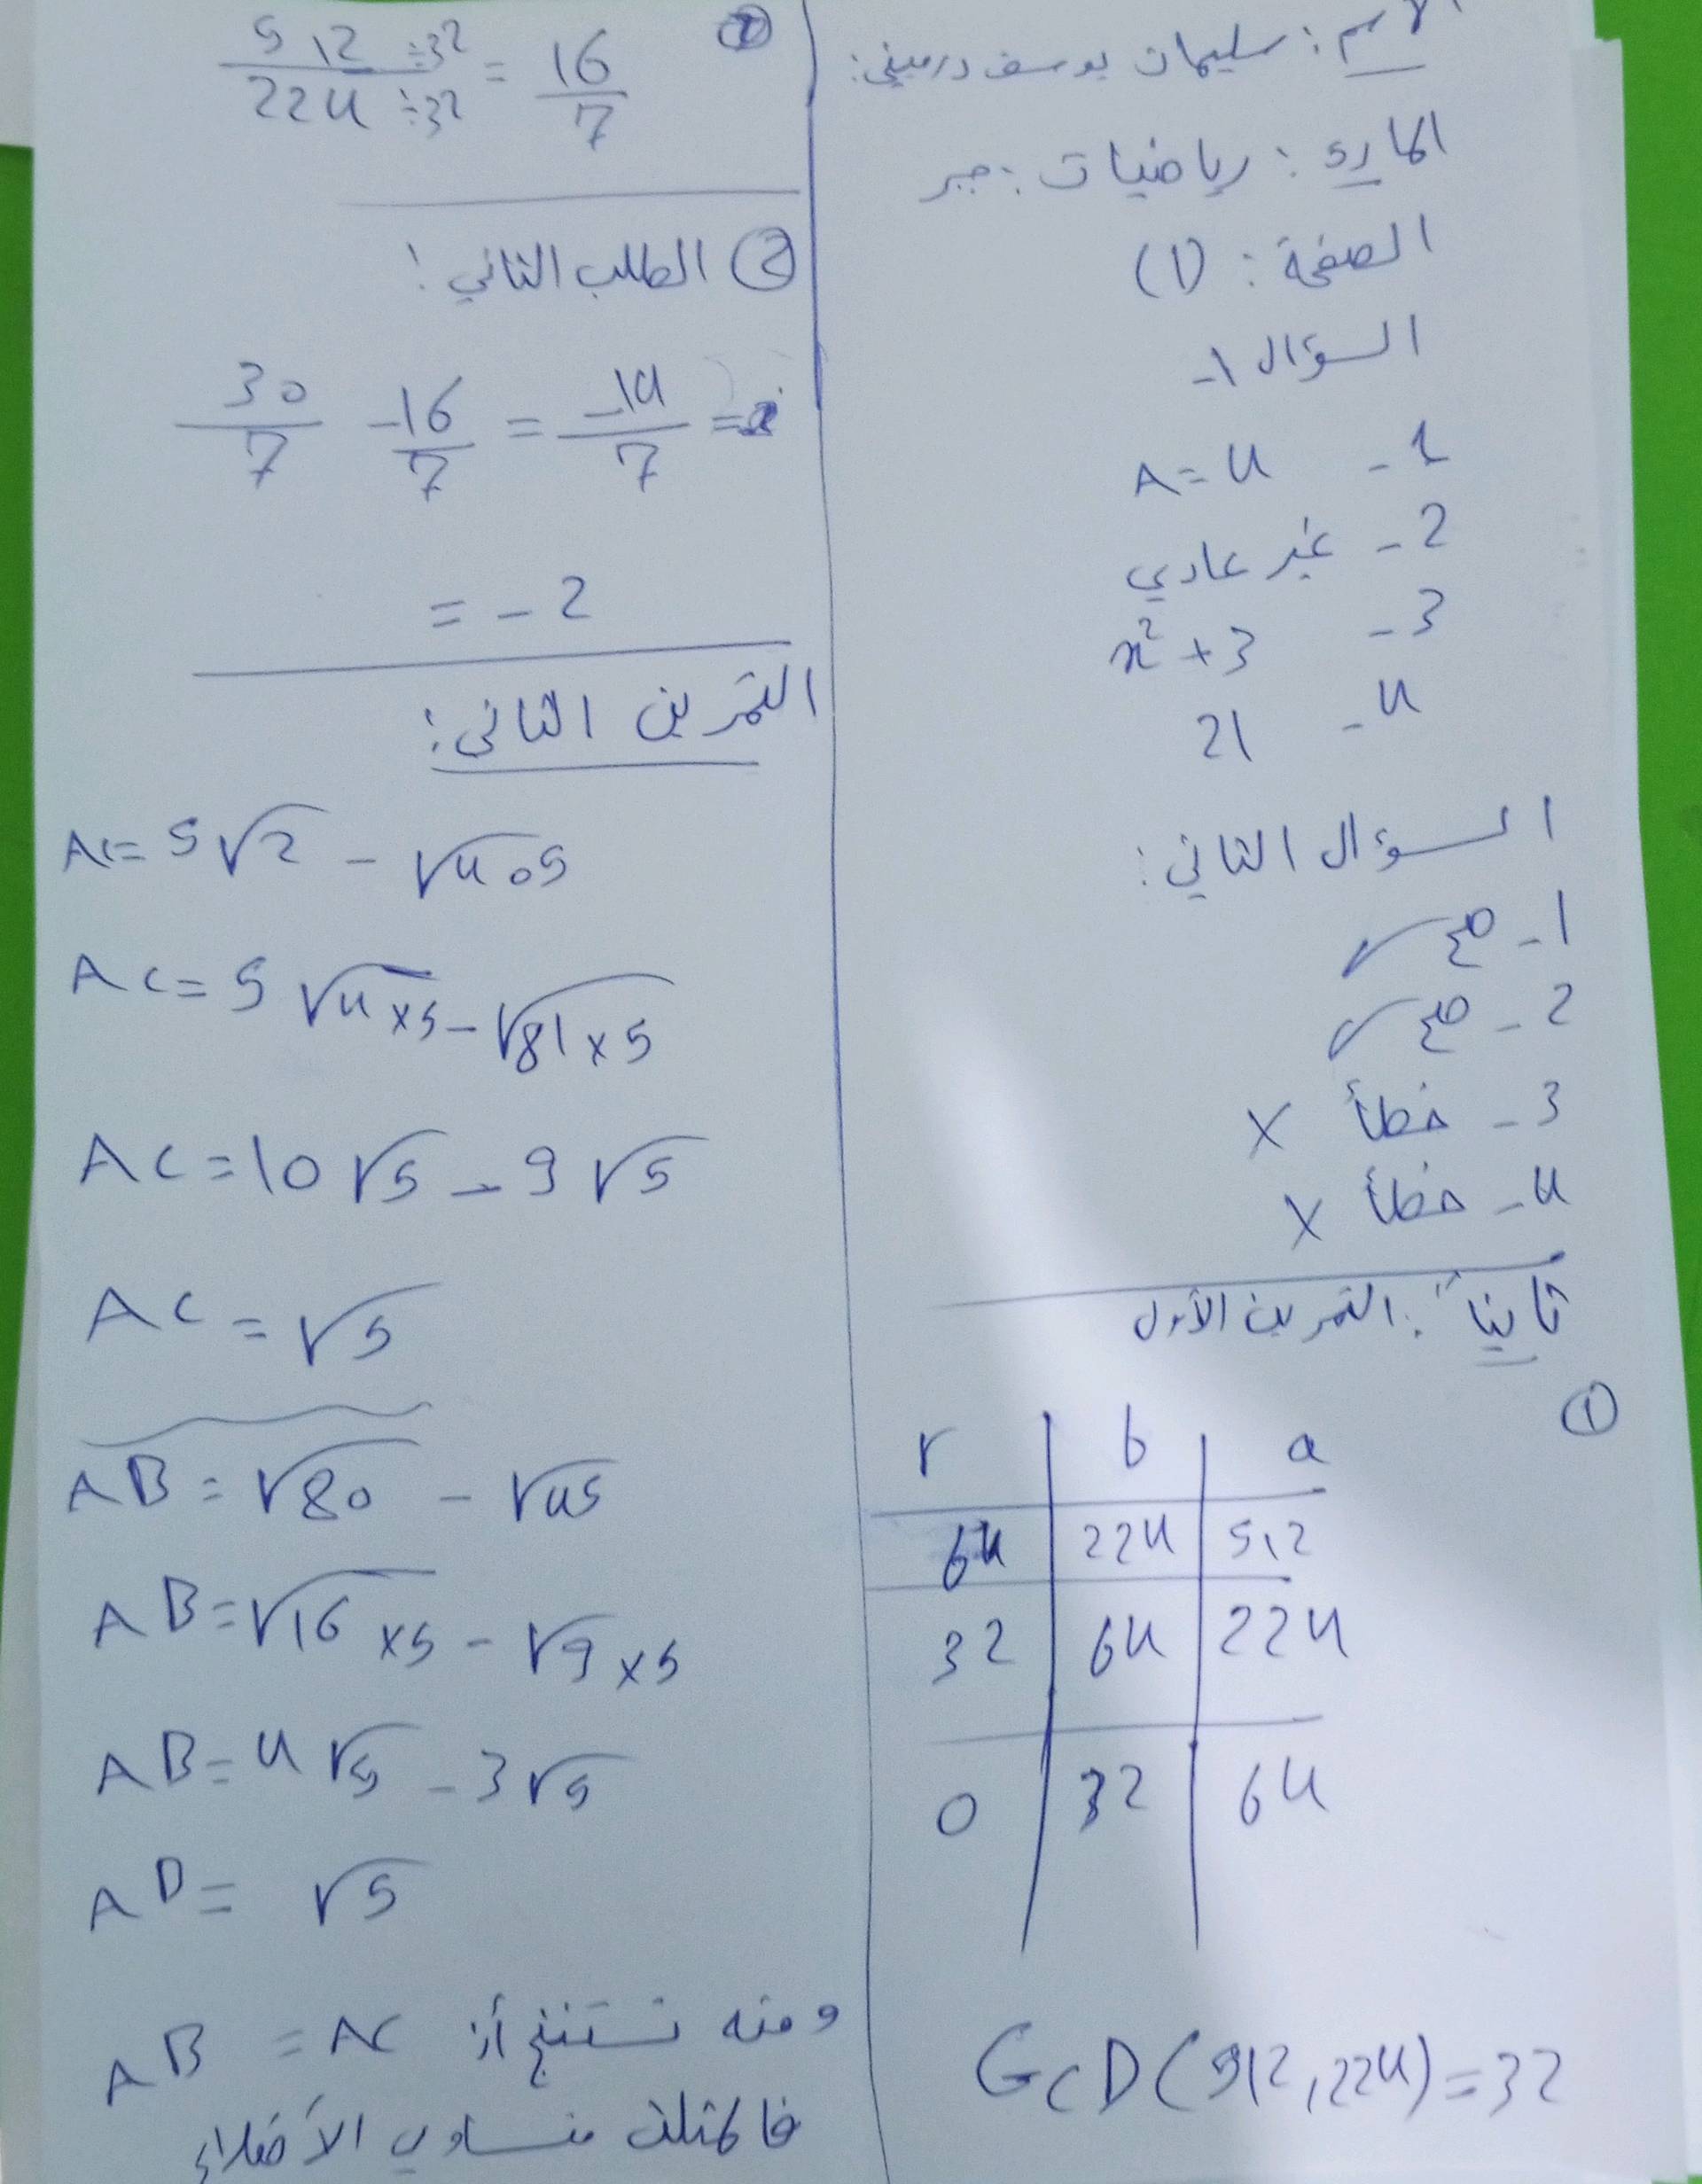 الاسم: سليمان يوسف درميني:
المادة: رياضيات: جبر
الصفحة: (1)
السؤال 1-
1- A = 4
2- غير عادي
3- x² + 3
4- 21
السؤال الثاني:
1- صح ✓
2- صح ✓
3- خطأ X
4- خطأ X
ثانياً: التمرين الأول
①
r | b | a
64 | 224 | 512
32 | 64 | 224
0 | 32 | 64
GCD(512, 224) = 32
512 ÷32 / 224 ÷32 = 16/7
② الطلب الثاني:
30/7 -16/7 = -14/7 =
= -2
التمرين الثاني:
AC = 5√2 - √405
AC = 5√4×5 - √81×5
AC = 10√5 - 9√5
AC = √5
AB = √80 - √45
AB = √16×5 - √9×5
AB = 4√5 - 3√5
AD = √5
ومنه نستنتج أن AB = AC
فالمثلث متساوي الأضلاع